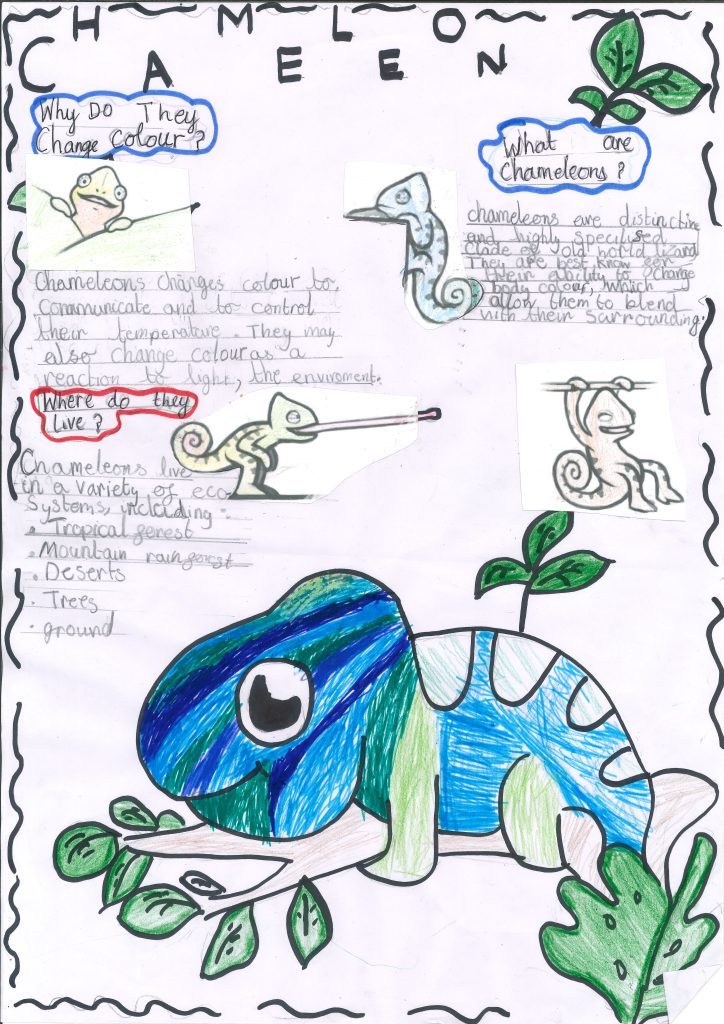 CHAMELEON
Why Do They
Change colour?
Chameleons changes colour to
communicate and to control
their temperature. They may
also change colour as a
reaction to light, the enviroment.
What are
Chameleons?
chameleons are distinctive
and highly specilised
clade of old world lizard
They are best know for
their ability to change
body colour, which
allow them to blend
with their surrounding.
Where do they
Live?
Chameleons live
in a variety of eco
systems, including:
• Tropical forest
• Mountain rainforest
• Deserts
• Trees
• ground